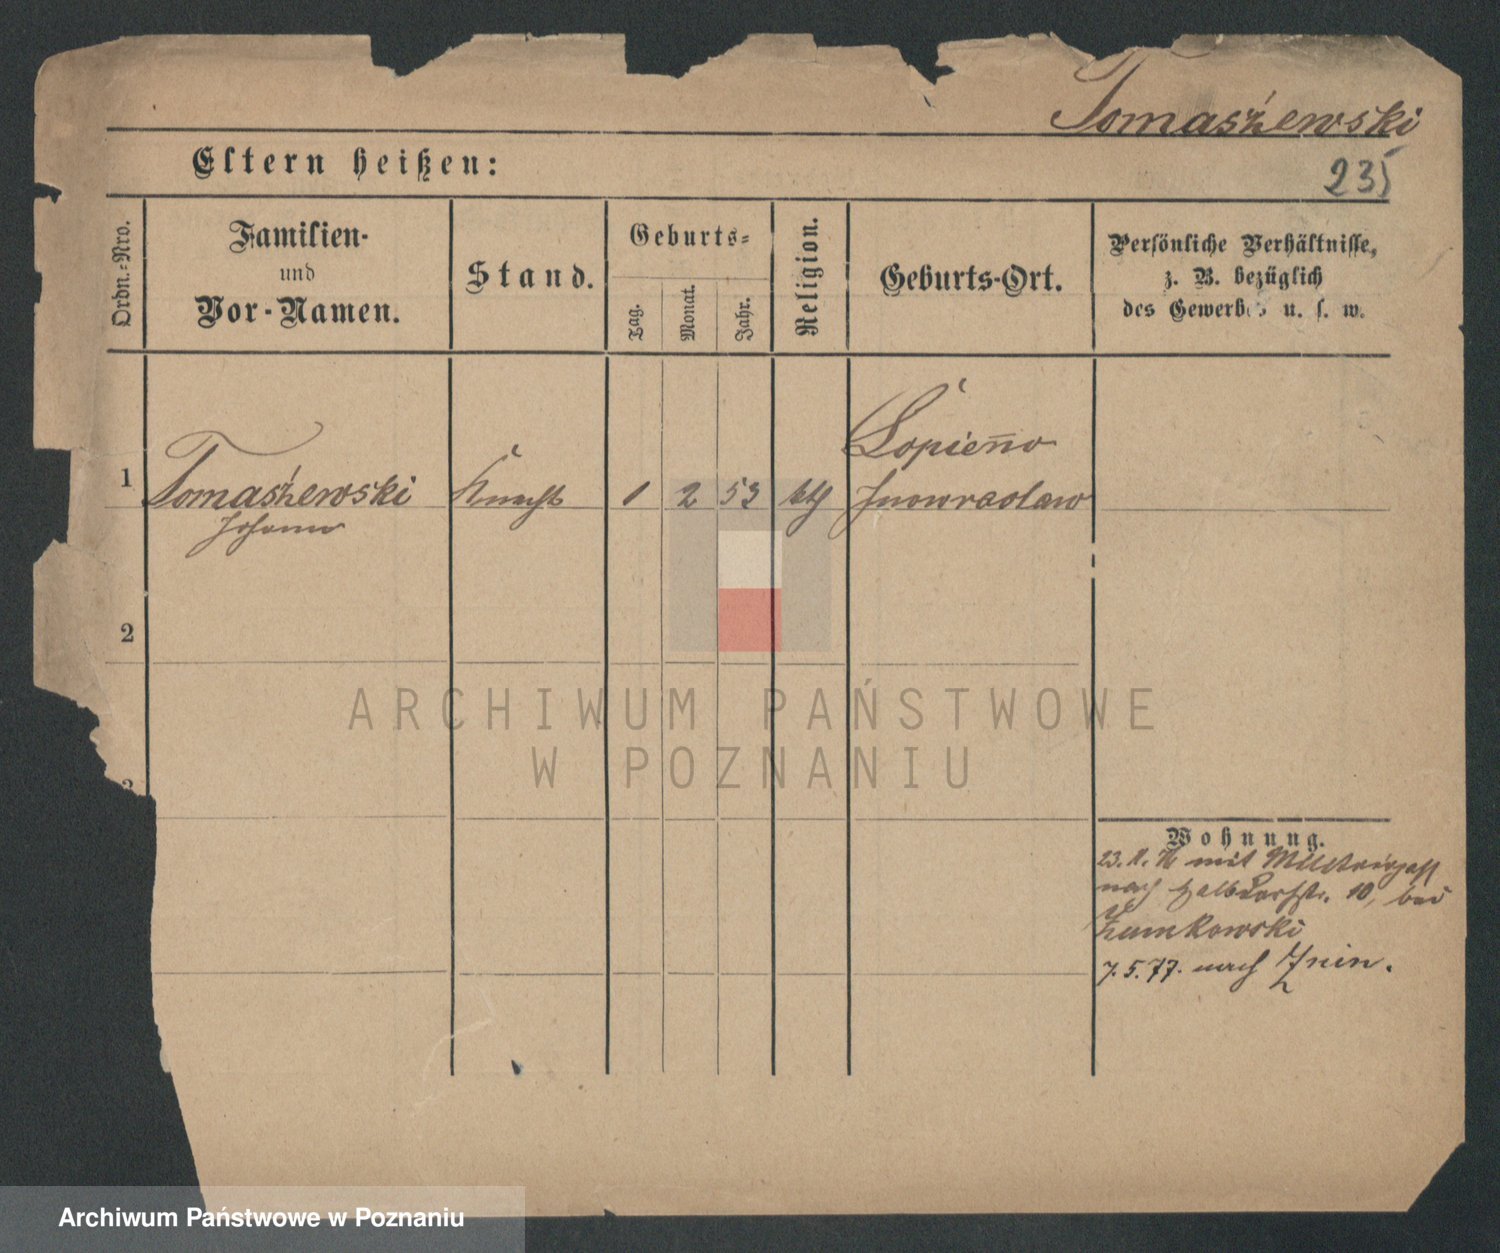 Tomaszewski
235
Eltern heißen:
Ordn.-Nro.
Familien-
und
Vor-Namen.
Stand.
Geburts-
Tag.
Monat.
Jahr.
Religion.
Geburts-Ort.
Persönliche Verhältnisse,
z. B. bezüglich
des Gewerbes u. s. w.
1
Tomaszewski
Johann
Knecht
1
2
53
kth
Łopienno
Inowraclaw
2
3
Wohnung.
23. 1. mit Militairpaß
nach Halbdorfstr. 10, bei
Żumkowski
7. 5. 77. nach Znin.
ARCHIWUM PAŃSTWOWE
W POZNANIU
Archiwum Państwowe w Poznaniu